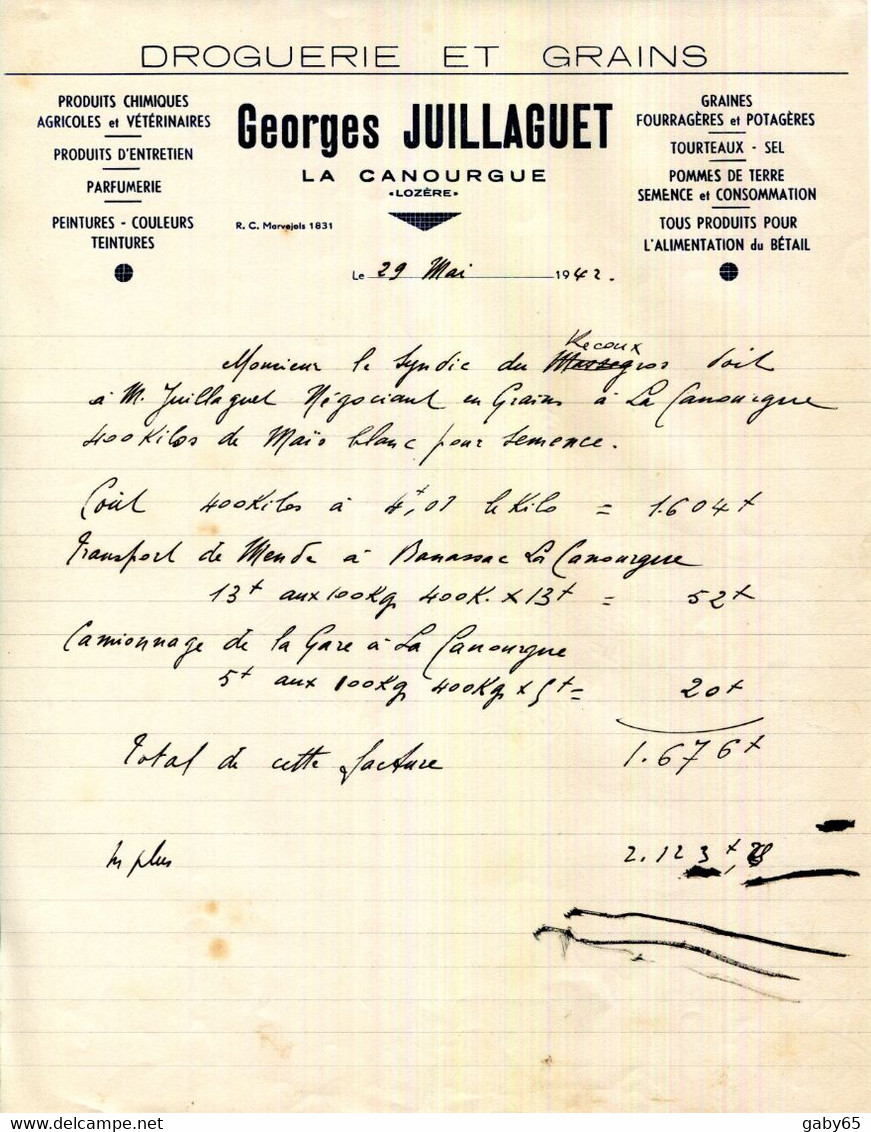 DROGUERIE ET GRAINS
PRODUITS CHIMIQUES
AGRICOLES et VÉTÉRINAIRES
PRODUITS D'ENTRETIEN
PARFUMERIE
PEINTURES - COULEURS
TEINTURES
Georges JUILLAGUET
LA CANOURGUE
•LOZÈRE•
R. C. Marvejols 1831
GRAINES
FOURRAGÈRES et POTAGÈRES
TOURTEAUX - SEL
POMMES DE TERRE
SEMENCE et CONSOMMATION
TOUS PRODUITS POUR
L'ALIMENTATION du BÉTAIL
Le 29 Mai 1942.
Recoux
Monsieur le Syndic du Massegros doit
à M. Juillaguet Négociant en Grains à La Canourgue
400 Kilos de Maïs blanc pour semence.
Coût 400 Kilos à 4f,01 le Kilo = 1.604f
Transport de Mende à Banassac La Canourgue
13f aux 100 Kg 400 K. x 13f = 52f
Camionnage de la Gare à La Canourgue
5f aux 100 Kg 400 Kg x 5f = 20f
Total de cette facture 1.676f
plus 2.123f,
gaby65